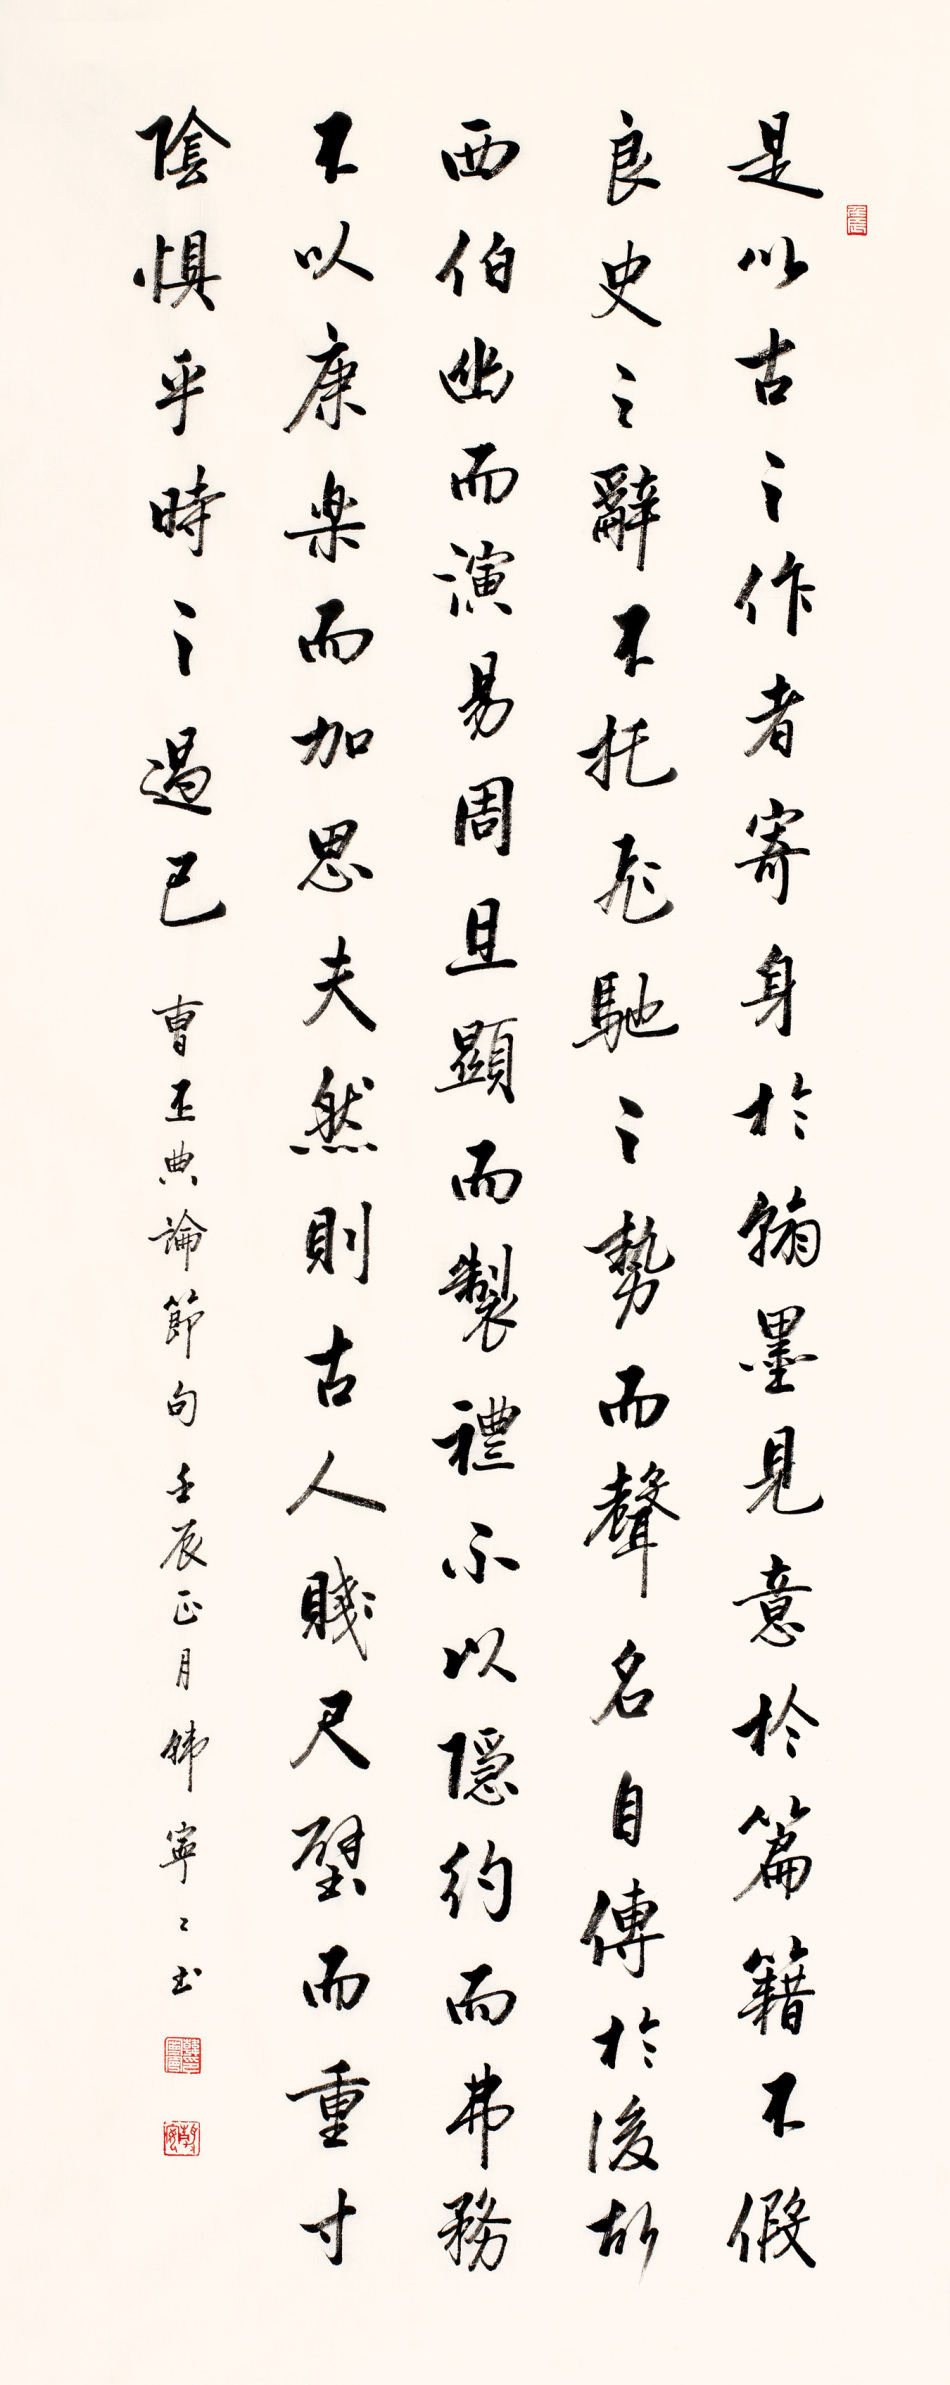 是以古之作者寄身於翰墨見意於篇籍不假
良史之辭不托飛馳之勢而聲名自傳於後故
西伯幽而演易周旦顯而製禮不以隱約而弗務
不以康楽而加思夫然則古人賤尺璧而重寸
陰惧乎時之過已 曹丕典論節句 壬辰正月韓寧寧书